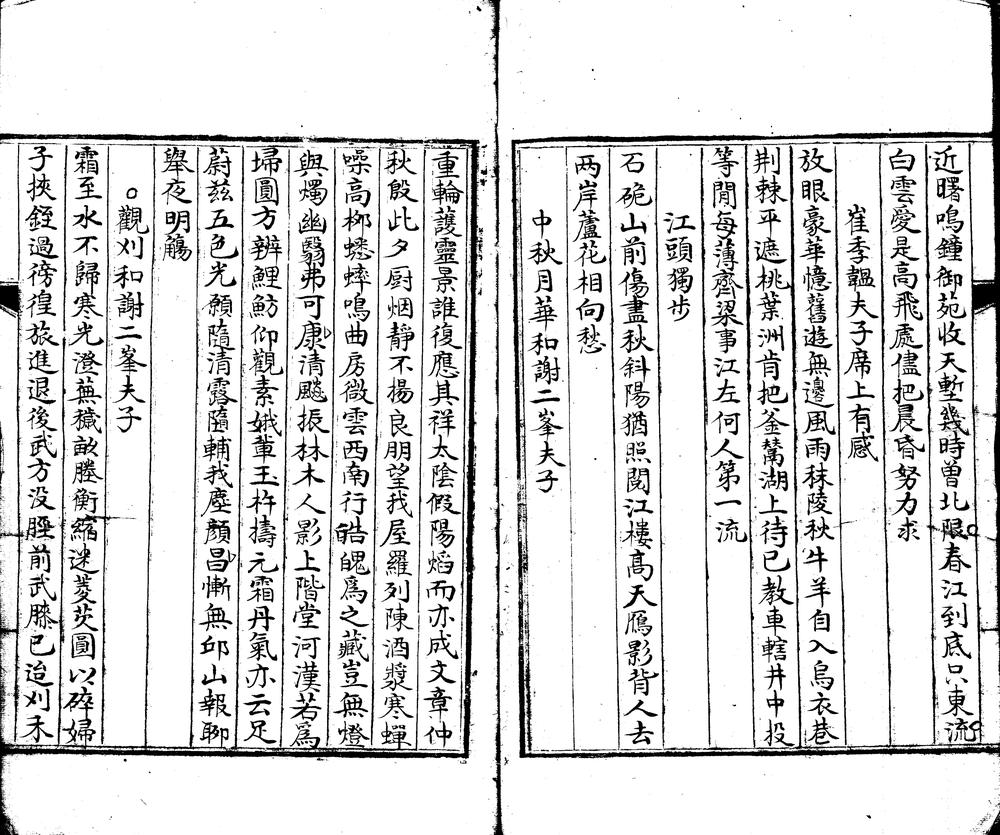 近曙鳴鐘御苑收天塹幾時曾北限春江到底只東流
白雲愛是高飛處儘把晨昏努力求
崔季韞夫子席上有感
放眼豪華憶舊遊無邊風雨秣陵秋牛羊自入烏衣巷
荆棘平遮桃葉洲肯把釜鬵湖上待已教車轄井中投
等閒每薄齊梁事江左何人第一流
江頭獨步
石硊山前傷盡秋斜陽猶照閱江樓高天鴈影背人去
两岸蘆花相向愁
中秋月華和謝二峯夫子
重輪護靈景誰復應其祥太陰假陽熖而亦成文章仲
秋殷此夕厨烟靜不揚良朋望我屋羅列陳酒漿寒蟬
噪高栁蟋蟀鳴曲房微雲西南行皓魄爲之藏豈無燈
與燭幽翳弗可康清飈振林木人影上階堂河漢若爲
埽圓方辨鯉魴仰觀素娥輩玉杵擣元霜丹氣亦云足
蔚兹五色光願隨清露隨輔我塵顏昌慚無邱山報聊
舉夜明觴
○觀刈和謝二峯夫子
霜至水不歸寒光澄蕪穢畝塍衡縮迷菱芡圓以碎婦
子挾銍過徬徨旅進退後武方没脛前武膝已迨刈禾